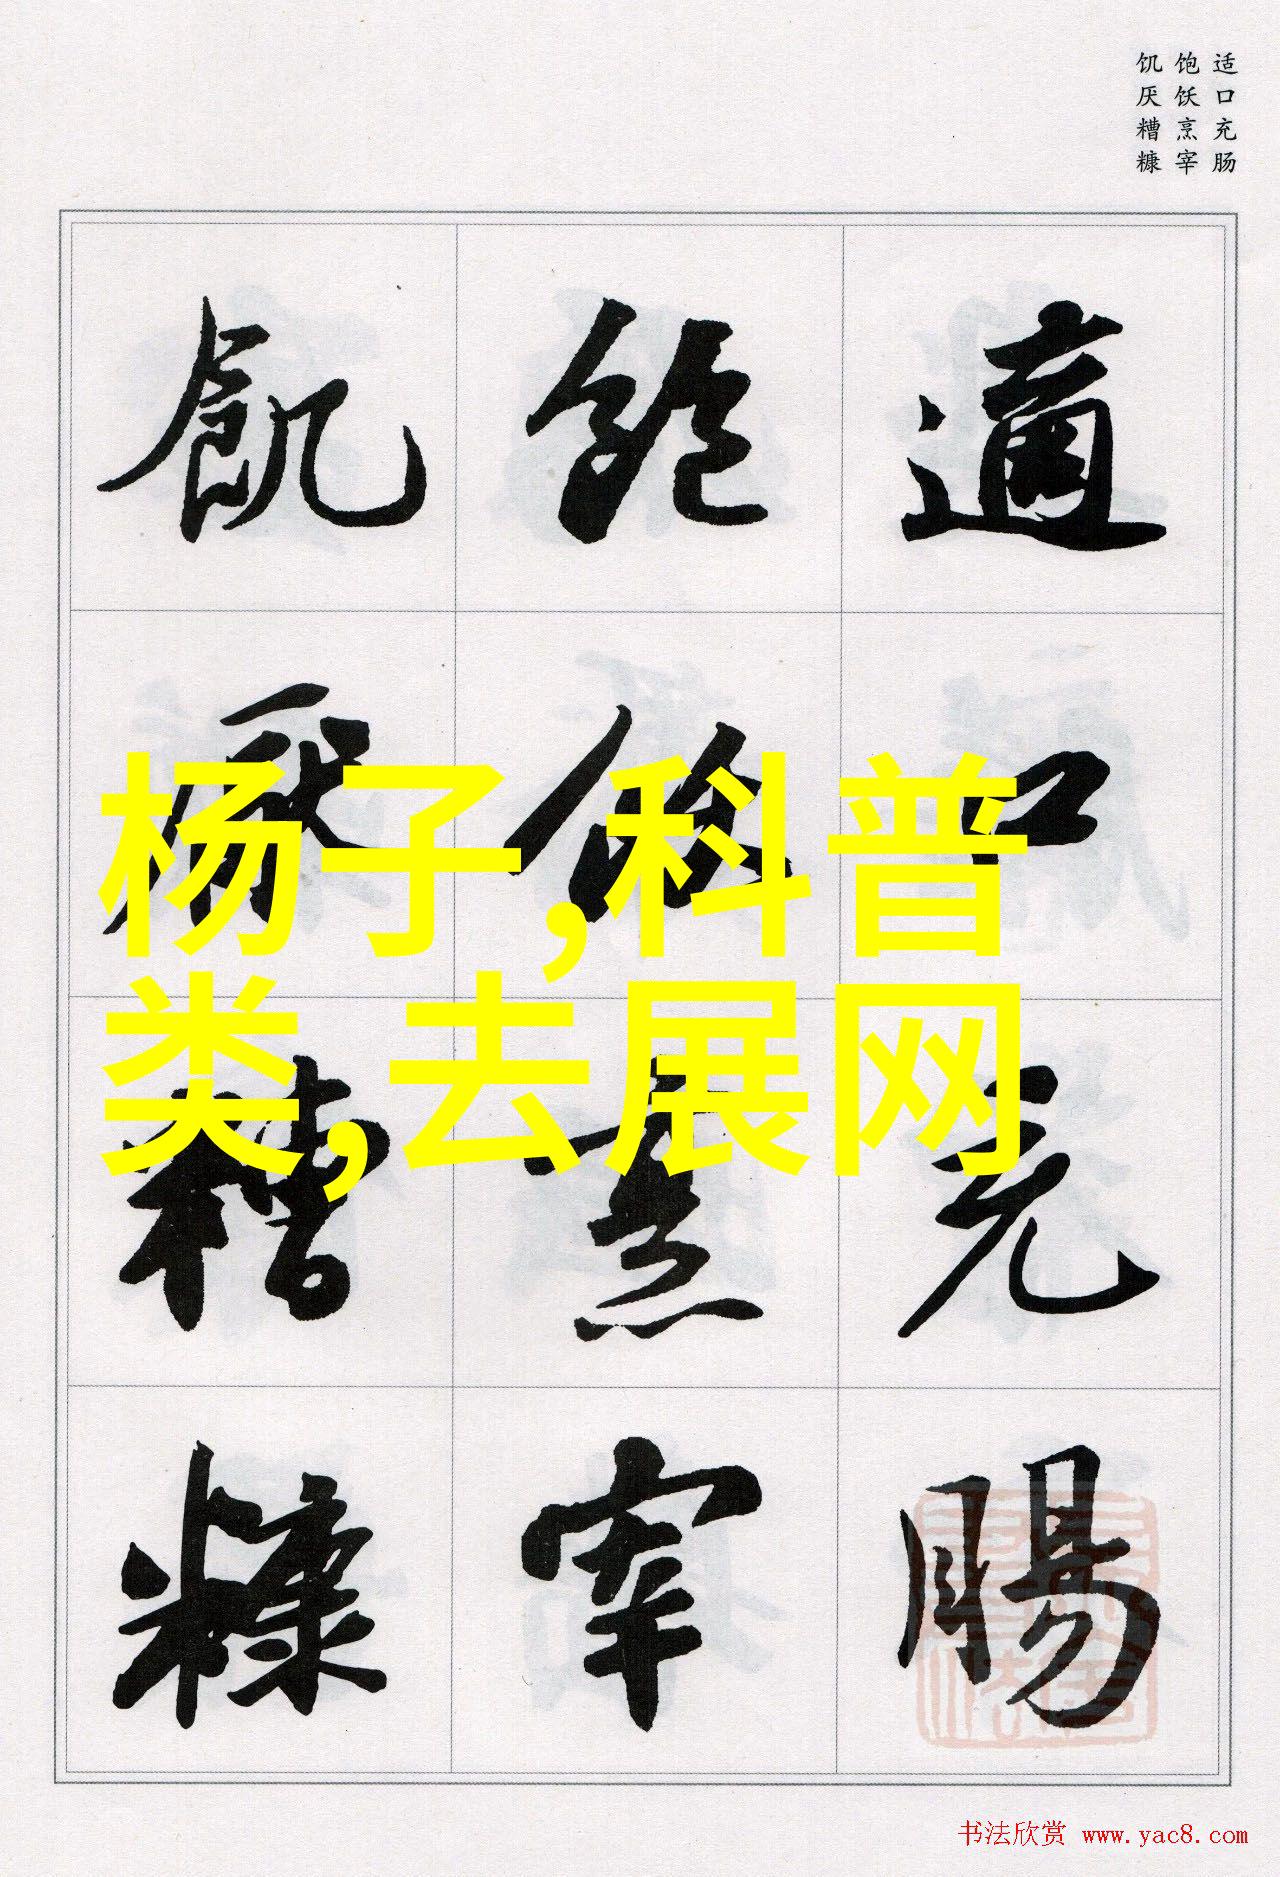 适口充肠
饱饫烹宰
饥厌糟糠
適口充腸
飽飫烹宰
飢厭糟糠
杨子,科普
类,去展网
书法欣赏 www.yac8.com